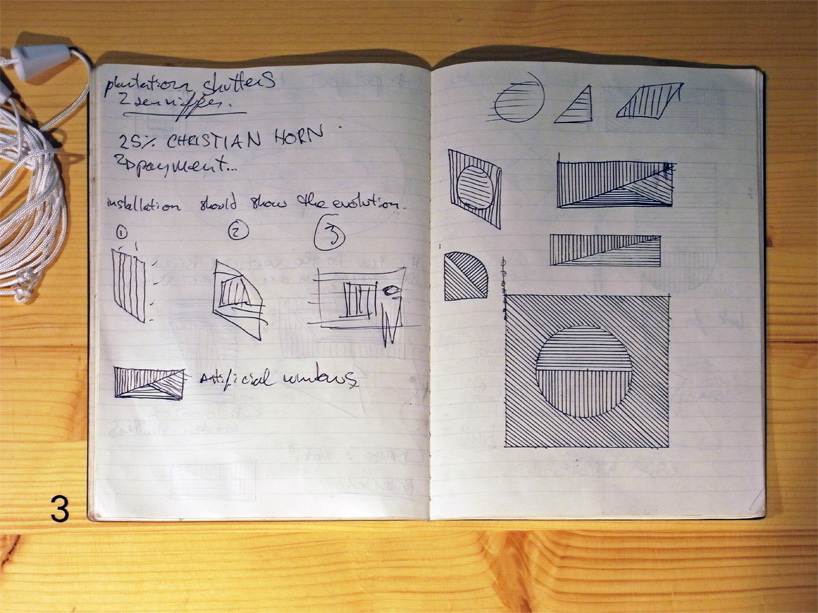 plantation shutters
25% CHRISTIAN HORN
payment...
installation should show the evolution.
1 2 3
Artificial windows
3